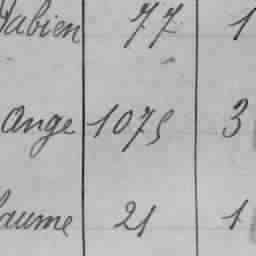 Fabien 77 1
ange 1075 3
aume 21 1